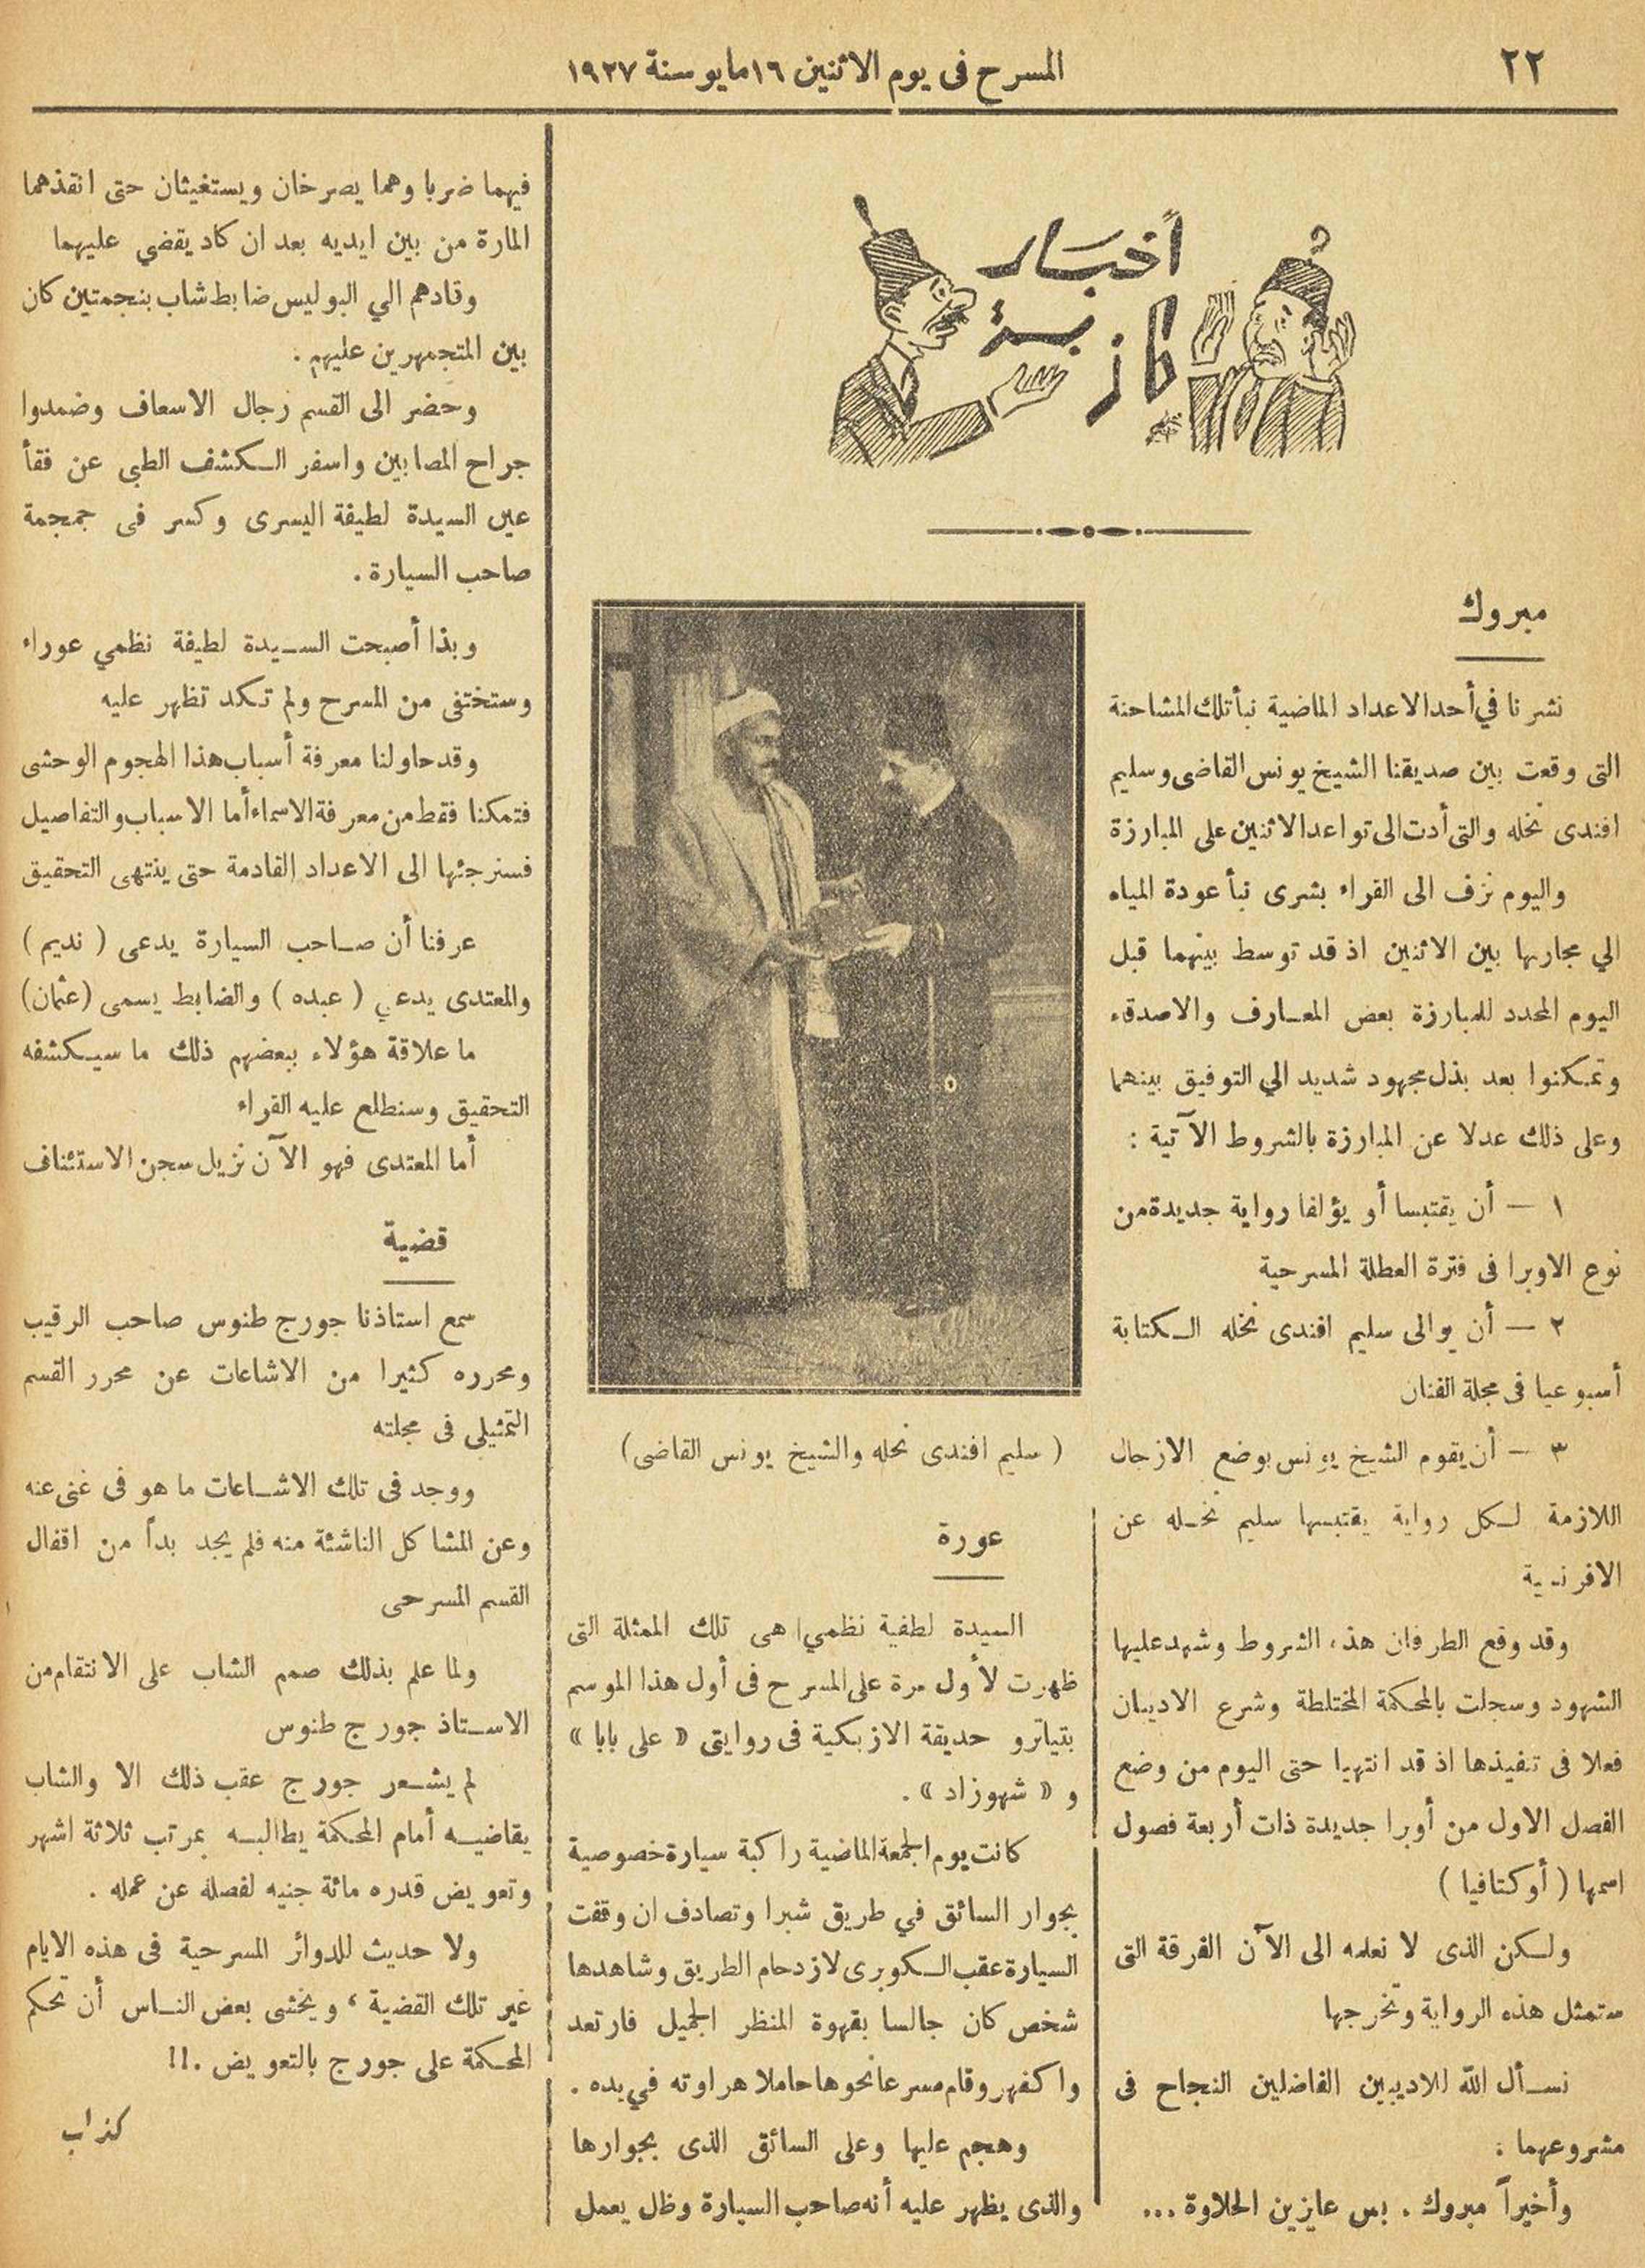 ٢٢
المسرح فى يوم الاثنين ١٦ مايو سنة ١٩٢٧
أخبار
كازبة
مبروك
نشرنا في أحد الاعداد الماضية نبأ تلك المشاحنة
التى وقعت بين صديقنا الشيخ يونس القاضى وسليم
افندى نخله والتى أدت الى تواعد الاثنين على المبارزة
واليوم نزف الى القراء بشرى نبأ عودة المياه
الي مجاريها بين الاثنين اذ قد توسط بينهما قبل
اليوم المحدد للمبارزة بعض المعارف والاصدقء
وتمكنوا بعد بذل مجهود شديد الي التوفيق بينهما
وعلى ذلك عدلا عن المبارزة بالشروط الآتية :
١ — أن يقتبسا أو يؤلفا رواية جديدة من
نوع الاوبرا فى فترة العطلة المسرحية
٢ — أن يوالى سليم افندى نخله الكتابة
أسبوعيا فى مجلة الفنان
٣ — أن يقوم الشيخ يونس بوضع الازجال
اللازمة لكل رواية يقتبسها سليم نخله عن
الافرنسية
وقد وقع الطرفان هذه الشروط وشهد عليها
الشهود وسجلت بالمحكمة المختلطة وشرع الاديبان
فعلا فى تنفيذها اذ قد انتهيا حتى اليوم من وضع
الفصل الاول من أوبرا جديدة ذات أربعة فصول
اسمها ( أوكتافيا )
ولكن الذى لا نعلمه الى الآن الفرقة التى
ستمثل هذه الرواية وتخرجها
نسأل الله للاديبين الفاضلين النجاح فى
مشروعهما :
وأخيراً مبروك . بس عايزين الحلاوة ...
( سليم افندى نخله والشيخ يونس القاضى )
عورة
السيدة لطفية نظمي هى تلك الممثلة التى
ظهرت لأول مرة على المسرح فى أول هذا الموسم
بتياترو حديقة الازبكية فى روايتى « على بابا »
و « شهوزاد » .
كانت يوم الجمعة الماضية راكبة سيارة خصوصية
بجوار السائق في طريق شبرا وتصادف ان وقفت
السيارة عقب الكوبرى لازدحام الطريق وشاهدها
شخص كان جالسا بقهوة المنظر الجميل فارتعد
واكفهر وقام مسرعا نحوها حاملا هراوته في يده .
وهجم عليها وعلى السائق الذى بجوارها
والذى يظهر عليه أنه صاحب السيارة وظل يعمل
فيهما ضربا وهما يصرخان ويستغيثان حتى انقذهما
المارة من بين ايديه بعد ان كاد يقضي عليهما
وقادهم الي البوليس ضابط شاب بنجمتين كان
بين المتجمهرين عليهم .
وحضر الى القسم رجال الاسعاف وضمدوا
جراح المصابين واسفر الكشف الطبى عن فقأ
عين السيدة لطيفة اليسرى وكسر فى جمجمة
صاحب السيارة .
وبذا أصبحت السيدة لطيفة نظمي عوراء
وستختفى من المسرح ولم تكد تظهر عليه
وقد حاولنا معرفة أسباب هذا الهجوم الوحشى
فتمكنا فقط من معرفة الاسماء أما الاسباب والتفاصيل
فسنرجئها الى الاعداد القادمة حتى ينتهى التحقيق
عرفنا أن صاحب السيارة يدعى ( نديم )
والمعتدى يدعي ( عبده ) والضابط يسمى ( عثمان )
ما علاقة هؤلاء ببعضهم ذلك ما سيكشفه
التحقيق وسنطلع عليه القراء
أما المعتدى فهو الآن نزيل سجن الاستئناف
قضية
سمع استاذنا جورج طنوس صاحب الرقيب
ومحرره كثيرا من الاشاعات عن محرر القسم
التمثيلى فى مجلته
ووجد فى تلك الاشاعات ما هو فى غنى عنه
وعن المشاكل الناشئة منه فلم يجد بداً من اقفال
القسم المسرحى
ولما علم بذلك صمم الشاب على الانتقام من
الاستاذ جورج طنوس
لم يشعر جورج عقب ذلك الا والشاب
يقاضيه أمام المحكمة يطالبه بمرتب ثلاثة اشهر
وتعويض قدره مائة جنيه لفصله عن عمله .
ولا حديث للدوائر المسرحية فى هذه الايام
غير تلك القضية ، ويخشى بعض الناس أن تحكم
المحكمة على جورج بالتعويض .!!
كذاب